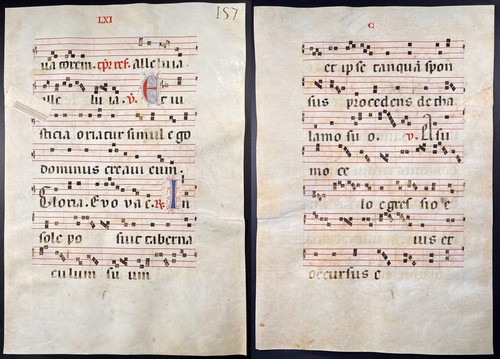 LXI
157
va torem. tp̄r ref. alleluia
alle lu ia. ℣. Et iu
sticia oriatur simul ego
dominus creavi eum.
Gloria. Evovae. ℟. In
sole po suit taberna
culum su um
C
et ipse tanquā spon
sus procedens de tha
lamo su o. ℣. A su
mo ce
lo egres sio e
ius et
occursus e